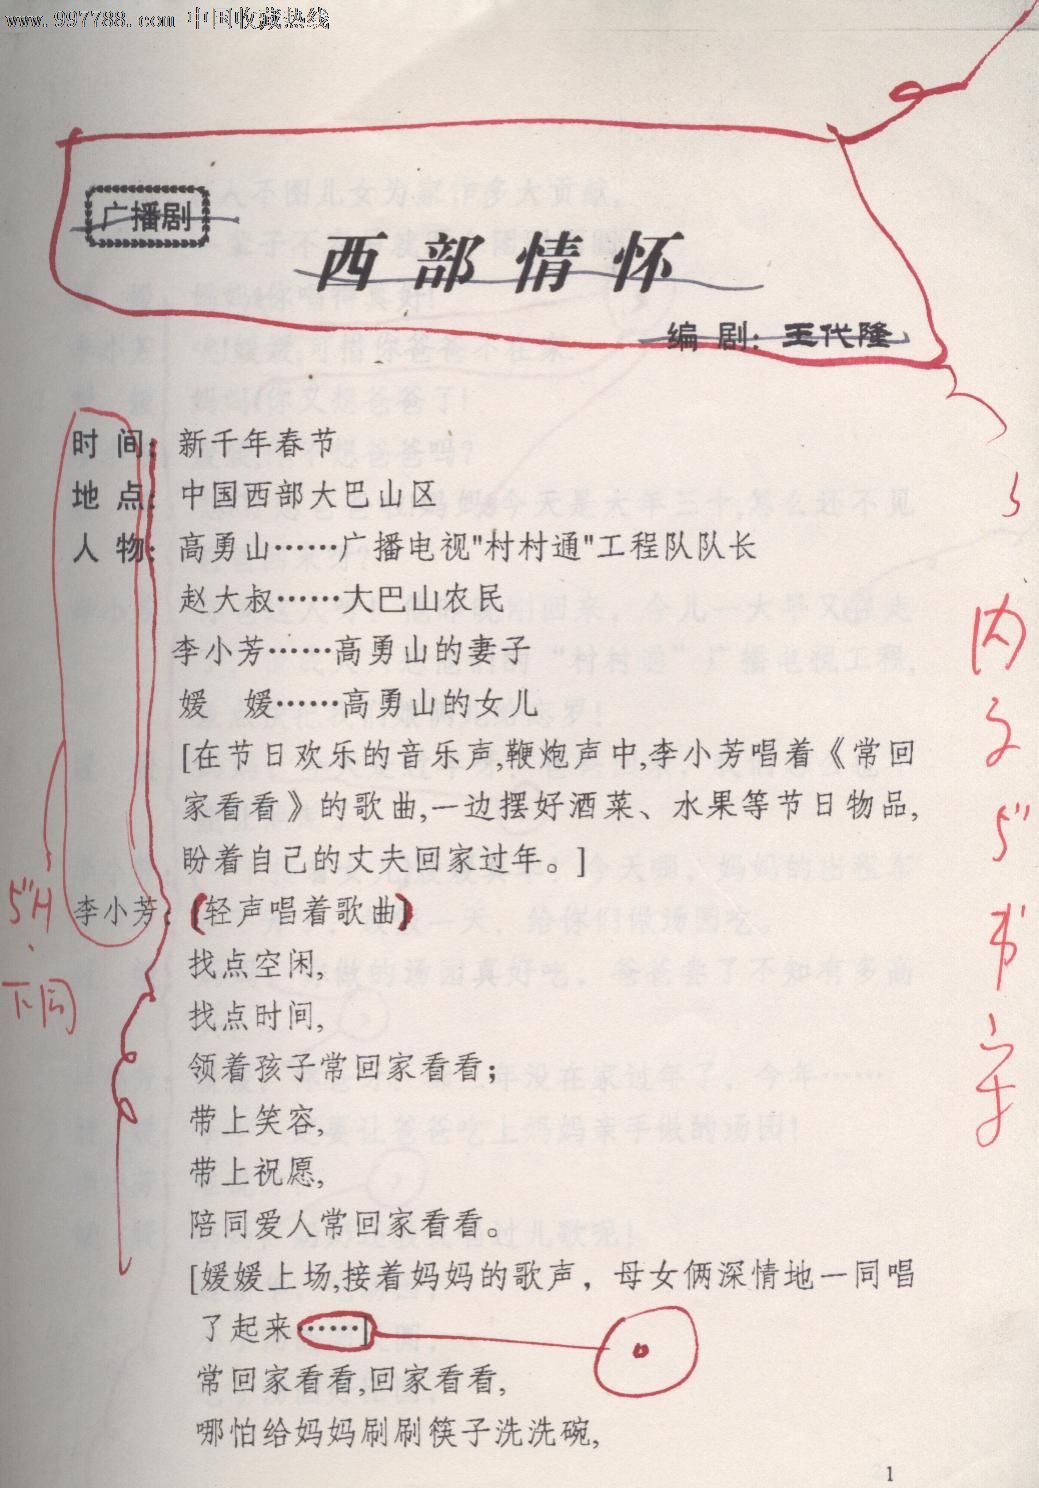 www.997788.com 中国收藏热线
广播剧
西部情怀
编剧：王代隆
时间：新千年春节
地点：中国西部大巴山区
人物：高勇山……广播电视"村村通"工程队队长
赵大叔……大巴山农民
李小芳……高勇山的妻子
媛　媛……高勇山的女儿
[在节日欢乐的音乐声,鞭炮声中,李小芳唱着《常回
家看看》的歌曲,一边摆好酒菜、水果等节日物品,
盼着自己的丈夫回家过年。]
李小芳：(轻声唱着歌曲)
找点空闲,
找点时间,
领着孩子常回家看看;
带上笑容,
带上祝愿,
陪同爱人常回家看看。
[媛媛上场,接着妈妈的歌声，母女俩深情地一同唱
了起来……]
常回家看看,回家看看,
哪怕给妈妈刷刷筷子洗洗碗,
1
5"H
下同
内文5"书宋